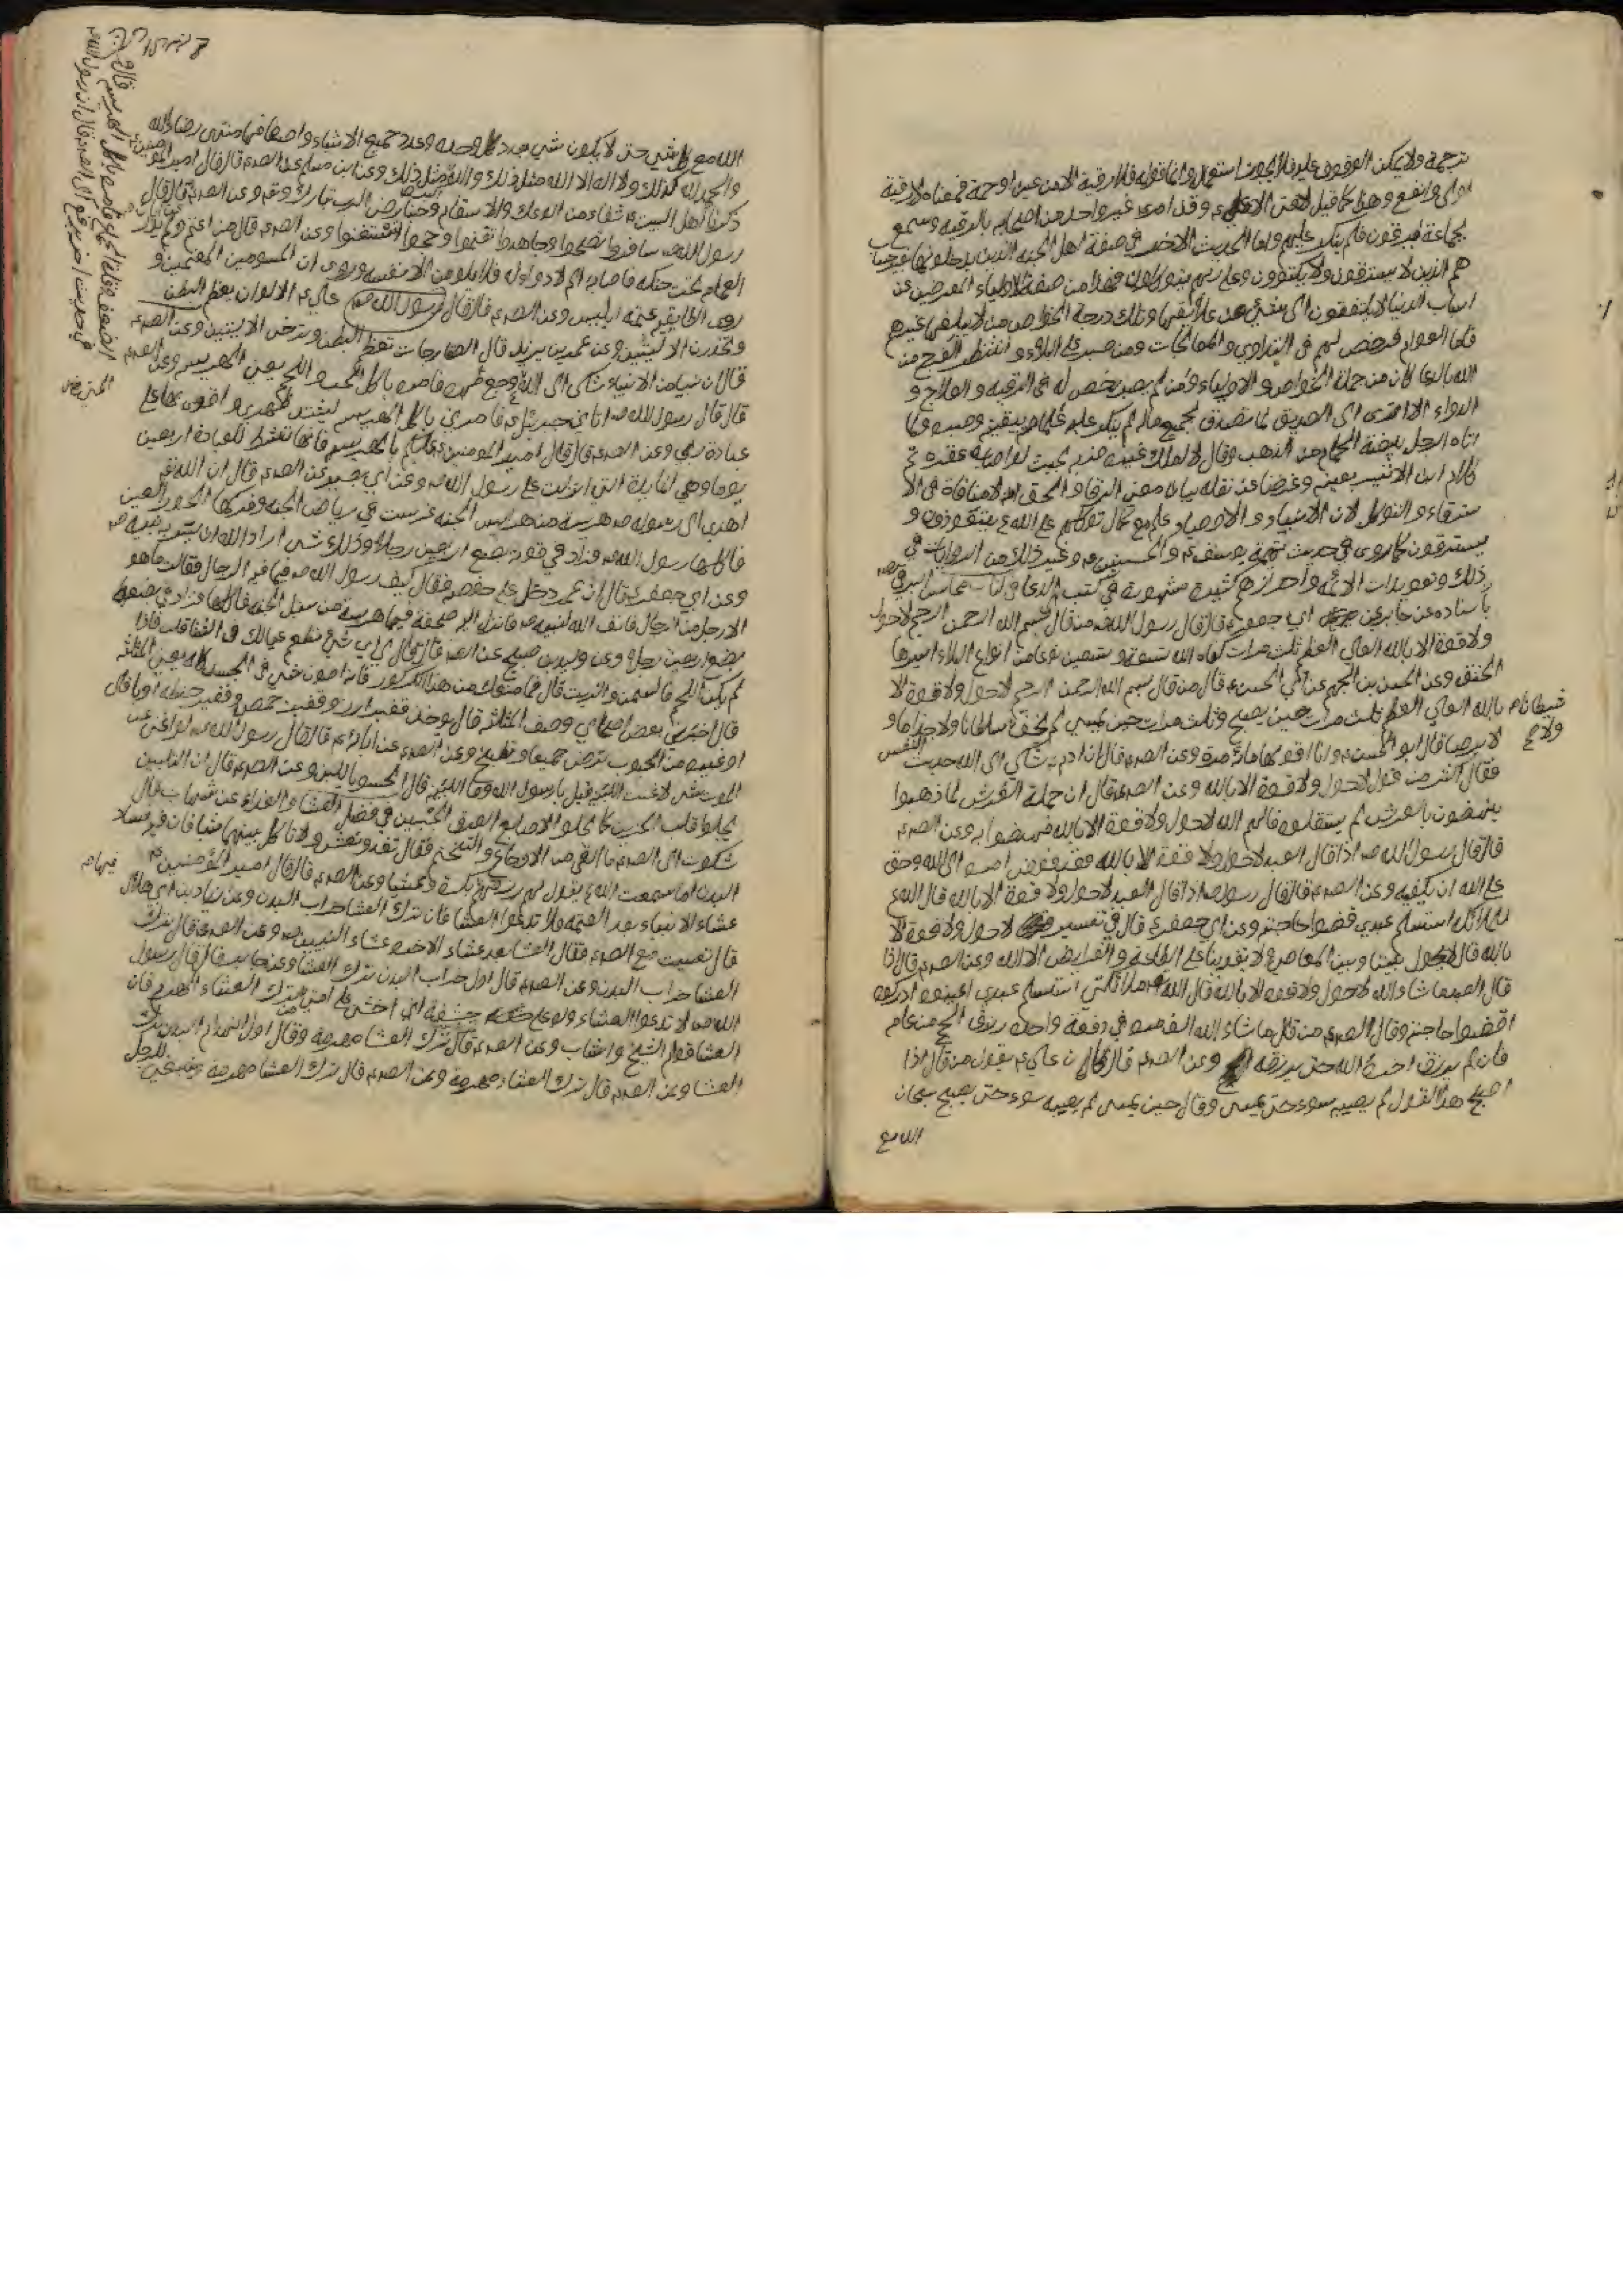 ترجمة ولا يمكن الوقوف عليه فلا يجوز استعماله واما قوله فلا رقية الا من عين او حمة فمعناه لا رقية
اولى وانفع وهذا كما قيل لا فتى الا علي وقد امر غير واحد من اصحابه بالرقية وسمع
بجماعة يرقون فلم ينكر عليهم واما الحديث الاخر في صفة اهل الجنة الذين يدخلونها بغير حساب
هم الذين لا يسترقون ولا يكتوون وعلى ربهم يتوكلون فهذا من صفة الاولياء المعرضين عن
اسباب الدنيا لا يلتفتون الى شيء من علائقها وتلك درجة الخواص من لا يبلغها غيرهم
فاما العوام فرخص لهم في التداوي والمعالجات ومن صبر على البلاء وانتظر الفرج من
الله بالدعا كان من جملة الخواص والاولياء ومن لم يصبر رخص له في الرقية والعلاج و
الدواء الا ترى الى الصديق لما تصدق بجميع ماله لم ينكر عليه علما منه بيقينه وصبره ولما
اتاه الرجل ببيضة الحمام من الذهب وقال لا املك غيره ضربه بحيث لو اصابه عقره تم
كلام ابن الاثير بعينه وغرضنا من نقله بيان معنى الرقا والحق انه لا منافاة في الا
سترقاء والتوكل لان الانبياء والاوصياء عليهم مع كمال توكلهم على الله يتعوذون و
يسترقون كما روى في حديث تميمة يوسف والحسنين وغير ذلك من الروايات في
ذلك وتعويذات الائمة واحرازهم كثيرة مشهورة في كتب الدعا وكتاب محاسن البرقي
باسناده عن جابر عن ابي جعفر قال قال رسول الله من قال بسم الله الرحمن الرحيم لا حول
ولا قوة الا بالله العلي العظيم ثلث مرات كفاه الله تسعة وتسعين نوعا من انواع البلاء ايسرها
الخنق وعن الحسن بن الجهم عن ابي الحسن قال من قال بسم الله الرحمن الرحيم لا حول ولا قوة الا
بالله العلي العظيم ثلث مرات حين يصبح وثلث مرات حين يمسي لم يخف سلطانا ولا جذاما و
شيطانا
لا برصا قال ابو الحسن وانا اقولها مائة مرة وعن الصادق قال ان ادم شكى الى الله حديث النفس
فقال اكثر من قول لا حول ولا قوة الا بالله وعن الصادق قال ان حملة العرش لما ذهبوا
ينهضون بالعرش لم يستقلوه فالهمهم الله لا حول ولا قوة الا بالله فنهضوا به وعن الصادق
قال قال رسول الله اذا قال العبد لا حول ولا قوة الا بالله فقد فوض امره الى الله وحق
على الله ان يكفيه وعن الصادق قال قال رسول الله اذا قال العبد لا حول ولا قوة الا بالله قال الله
لملائكته استسلم عبدي اقضوا حاجته وعن ابي جعفر قال في تفسير لا حول ولا قوة الا
بالله قال لا يحول بيننا وبين المعاصي ولا يقوينا على الطاعة والفرايض الا الله وعن الصادق قال اذا
قال العبد ما شاء الله لا حول ولا قوة الا بالله قال الله ملائكتي استسلم عبدي اعينوه ادركوه
اقضوا حاجته وقال الصادق من قال ما شاء الله الف مرة في دفعة واحدة رزق الحج من عامه
فان لم يرزق اخره الله حتى يرزقه وعن الصادق قال كان علي يقول من قال اذا
اصبح هذا القول لم يصيبه سوء حتى يمسي وقال حين يمسي لم يصيبه سوء حتى يصبح سبحان
الله مع
الله مع كل شي حتى لا يكون شي بعدد كل وحده وعدد جميع الاشياء واضعافها منتهى رضاء الله
والحمد لله كذلك ولا اله الا الله مثل ذلك والله مثل ذلك وعن ابن مسلم عن الصادق قال قال امير المومنين
ذكرنا اهل البيت شفاء من الوعك والاسقام وحبنا رضى الرب تبارك وتعالى وعن الصادق قال قال
رسول الله سافروا تصحوا وجاهدوا تغنموا وحجوا تستغنوا وعن الصادق قال من اعتم ولم يدر
العمامه تحت حنكه فاصابه الم لا دواء له فلا يلومن الا نفسه وروى ان المسومين المعتمين و
روى الطابقيه عمة ابليس وعن الصادق قال قال رسول الله علي الالوان يعظم البطن
ويخدرن الاليتين وعن محمد بن يزيد قال الطباهجات تعظم البطن وترخي الاليتين وعن الصادق
قال ان نبيا من الانبياء شكى الى الله وجع ظهره فامره باكل الحب واللحم يعني الهريس وعن الصادق
قال قال رسول الله اتاني جبرئيل فامرني باكل الهريس ليشتد ظهري واقوى بها على
عبادة ربي وعن الصادق قال قال امير المومنين عليكم بالهريس فانها تنشط للعبادة اربعين
يوما وهي المايدة التي انزلت على رسول الله وعن ابي بصير عن الصادق قال ان الله
اهدى الى رسوله هريسة من هرايس الجنة غرست في رياض الجنة وفركها الحور العين
فاكلها رسول الله فزاد في قوته بضع اربعين رجلا وذلك شي اراد الله ان يسر به نبيه
وعن ابي جعفر قال ان عمر دخل على حفصه فقال كيف رسول الله فيما فيه الرجال فقالت ما هو
الا رجل من الرجال فانف الله لنبيه فانزل اليه صحفة فيها هريسة من سنبل الجنة فاكلها فزاد في بضعه
بضع اربعين رجلا وعن وليد بن صبيح عن الصادق قال قال لي اي شي تطعم عيالك في الشتا قلت فاذا
لم يكن اللحم فالسمن والزيت قال فما منعك من هذا الكركور فانه اصون شي في الجسد كله يعني المثلثه
قال اخبرني بعض اصحابي وصف المثلثه قال يوخذ قفيز ارز وقفيز حمص وقفيز حنطه او باقلى
او غيره من الحبوب ترض جميعا وتطبخ وعن الصادق عن ابائه قال قال رسول الله لو اغنى عن
الموت شي لاغنت التلبينه قيل يا رسول الله وما التلبينه قال الحسو باللبن وعن الصادق قال ان التلبين
يجلوا قلب الحزين كما يجلوا الاصابع العرق الجبين في فضل العشا والغداء عن شهاب قال
شكوت الى الصادق ما القى من الاوجاع والتخم فقال تغد وتعش ولا تاكل بينهما شيئا فان فيه فساد
البدن اما سمعت الله يقول لهم رزقهم فيها بكرة وعشيا وعن الصادق قال قال امير المؤمنين
عشاء الانبياء بعد العتمه فلا تدعوا العشا فان ترك العشا خراب البدن وعن زياد بن ابي حلال
قال تعشيت مع الصادق فقال العشا بعد عشاء الاخرة عشاء النبيين وعن الصادق قال ترك
العشا خراب البدن وعن الصادق قال اول خراب البدن ترك العشا وعن جابر قال قال رسول
الله لا تدعوا العشاء ولو على حشفة اني اخشى على امتي من ترك العشاء الهرم فان
العشا قوة الشيخ والشاب وعن الصادق قال ترك العشا مهرمة وقال اول انهدام البدن ترك
العشا وعن الصادق قال ترك العشاء مهرمة وعن الصادق قال ترك العشا مهرمة وينبغي للرجل